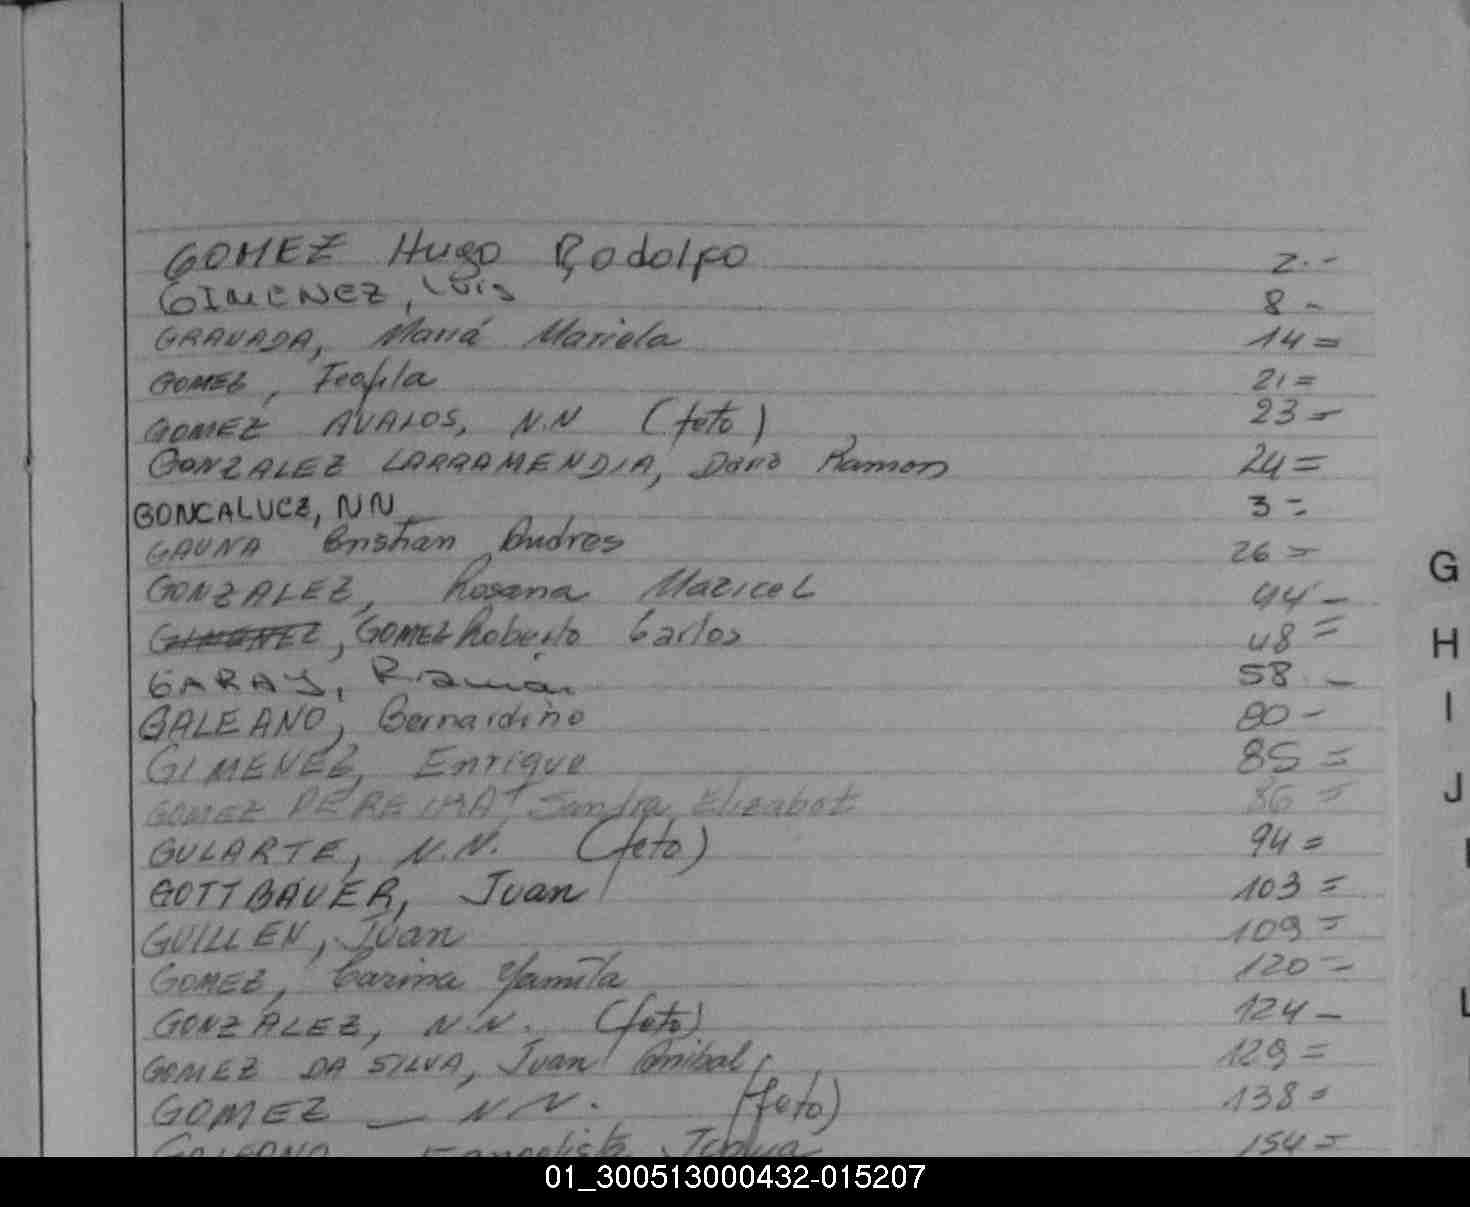 GOMEZ Hugo Rodolfo 2.-
GIMENEZ, Luis 8 -
GRAVADA, María Mariela 14 =
GOMEZ, Teofila 21 =
GOMEZ AVALOS, N.N (feto) 23 =
GONZALEZ LARRAMENDIA, Dario Ramon 24 =
GONCALUCZ, NN 3 =
GAUNA Cristian Andres 26 =
GONZALEZ, Rosana Maricel 44 =
GIMENEZ, GOMEZ Roberto Carlos 48 =
GARAY, Ramón 58 -
GALEANO, Bernardino 80 -
GIMENEZ, Enrique 85 =
GOMEZ Sandra Elizabet 86 =
GULARTE, N.N. (feto) 94 =
GOTTBAUER, Juan 103 =
GUILLEN, Juan 109 =
GOMEZ, Carina Yamila 120 -
GONZALEZ, N.N. (feto) 124 -
GOMEZ DA SILVA, Juan Anibal 129 =
GOMEZ - NN. (feto) 138 =
154 =
G
H
I
J
L
01_300513000432-015207